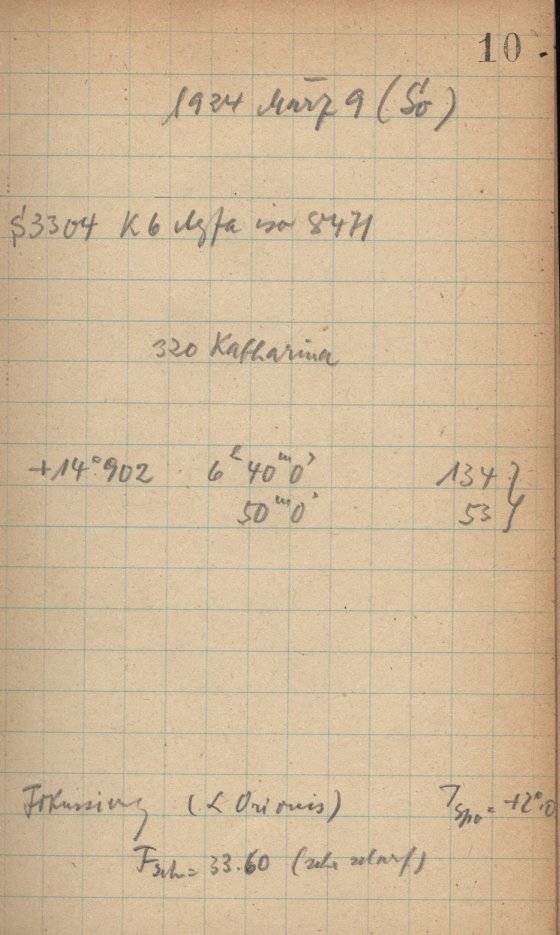 10
1924 März 9 (So)
S3304 K6 Agfa iso 8471
320 Katharina
+14°902 6ʰ 40ᵐ 0ˢ 134 }
50ᵐ 0ˢ 53 }
Fokussierung (α Orionis) T = +2°.0
F = 33.60 (sehr scharf)